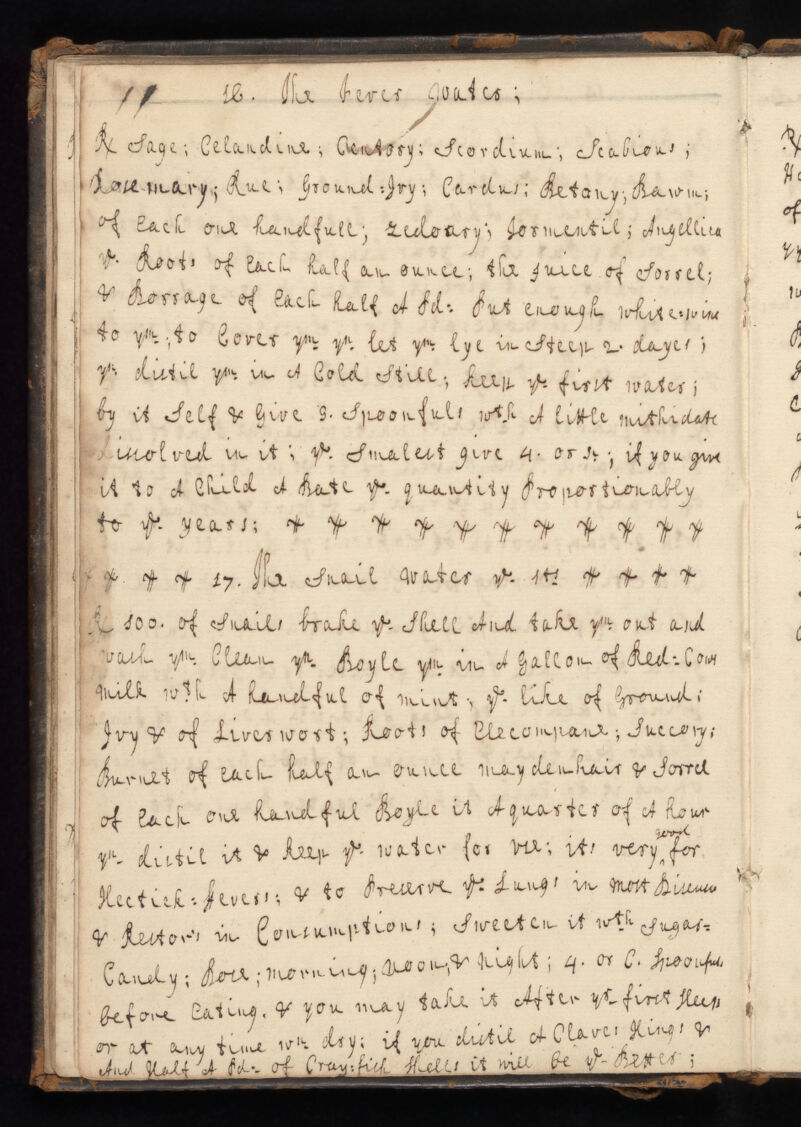 11 16. The Fever Water;
℞ Sage; Celandine; Centory; Scordium; Scabious;
Rosemary; Rue; Ground=Ivy; Cardus; Betony; Bawm;
of Each one handfull; Zedoary; Tormentil; Angellica
ye. Roots of Each half an ounce; the Juice of Sorrel;
& Borrage of Each half A Pd: Put enough white=wine
to ym; to Cover ym yn let ym lye in Steep 2. dayes;
yn distil ym in A Cold Still; keep ye first water;
by it Self & Give 3. Spoonfuls wth A little mithidate
dissolved in it; ye. Smalest give 4. or 5.; if you give
it to A Child A Bate ye. quantity Proportionably
to ye. years;
17. The Snail Water ye. 1st
℞ 100. of Snails brake ye. Shell And take ym out and
wash ym Clean yn Boyle ym in A Gallon of Red=Cows
milk wth A handful of mint; ye. like of Ground:
Ivy & of Liverwort; Roots of Elecompane; Succory;
Burnet of each half an ounce maydenhair & Sorrel
of Each one handful Boyle it A quarter of A hour
yn distil it & keep ye. water for use; its very good for
Hectick=Fevers; & to Preserve ye. Lungs in most Diseases
& Restors in Consumptions; Sweeten it wth Sugar=
Candy; Rose; morning; Noon; & Night; 4. or 6. Spoonfuls
before Eating. & you may take it After yr first Sleep
or at any time wn dry; if you distil A Claves Kings &
And Half A Pd: of Cray=fish Shells it will be ye. Better;